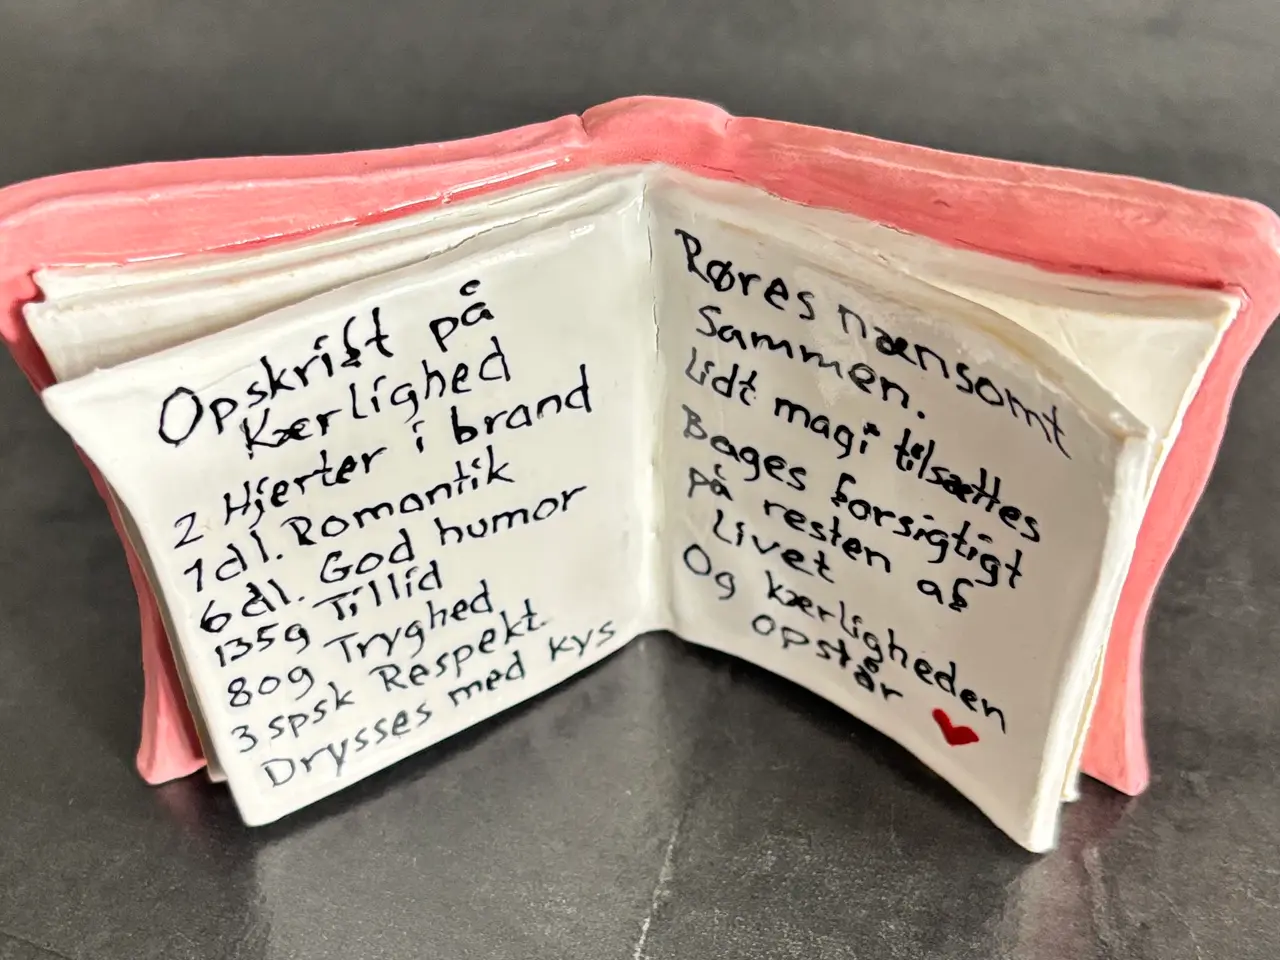 Opskrift på
Kærlighed
2 Hjerter i brand
1 dl. Romantik
6 dl. God humor
135g Tillid
80g Tryghed
3 spsk Respekt.
Drysses med kys
Røres nænsomt
Sammen.
Lidt magi tilsættes
Bages forsigtigt
på resten af
Livet
Og kærligheden
opstår